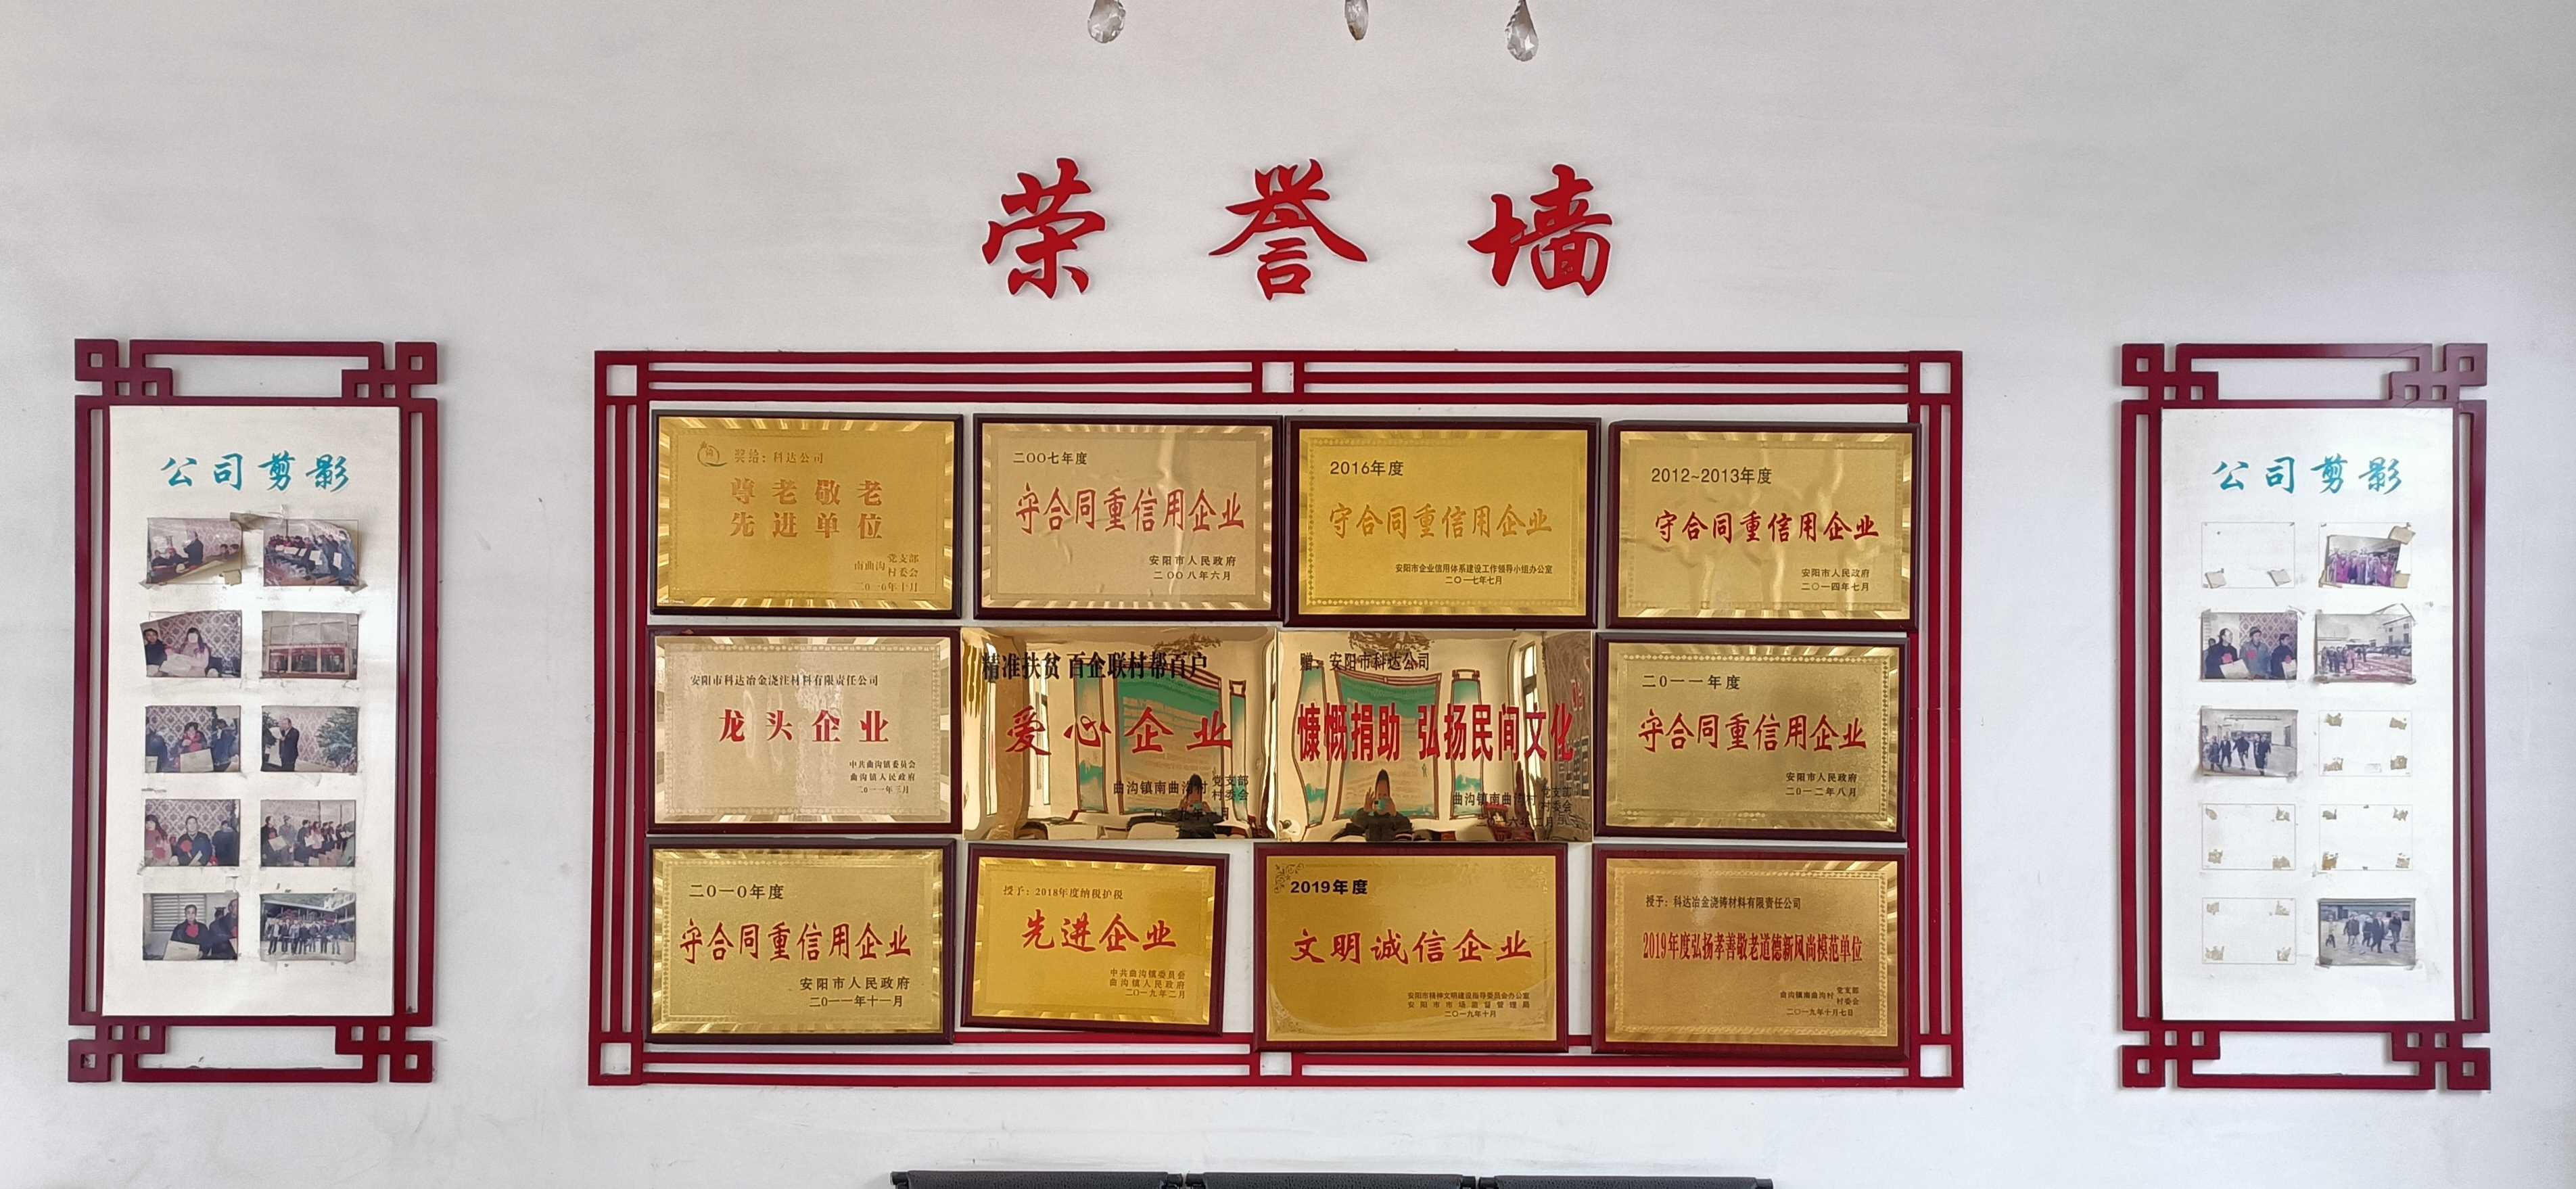 荣誉墙
公司剪影
奖给：科达公司
尊老敬老
先进单位
南曲沟 党支部
村委会
二〇一〇年十月
二〇〇七年度
守合同重信用企业
安阳市人民政府
二〇〇八年六月
2016年度
守合同重信用企业
安阳市企业信用体系建设工作领导小组办公室
二〇一七年七月
2012~2013年度
守合同重信用企业
安阳市人民政府
二〇一四年七月
安阳市科达冶金浇注材料有限责任公司
龙头企业
中共曲沟镇委员会
曲沟镇人民政府
二〇一一年三月
精准扶贫 百企联村帮百户
爱心企业
曲沟镇南曲沟村 党支部
村委会
赠：安阳市科达公司
慷慨捐助 弘扬民间文化
曲沟镇南曲沟村 党支部
村委会
二〇一一年度
守合同重信用企业
安阳市人民政府
二〇一二年八月
二〇一〇年度
守合同重信用企业
安阳市人民政府
二〇一一年十一月
授予：2018年度纳税护税
先进企业
中共曲沟镇委员会
曲沟镇人民政府
二〇一九年二月
2019年度
文明诚信企业
安阳市精神文明建设指导委员会办公室
安阳市市场监督管理局
二〇一九年十月
授予：科达冶金浇铸材料有限责任公司
2019年度弘扬孝善敬老道德新风尚模范单位
曲沟镇南曲沟村 党支部
村委会
二〇一九年十月七日
公司剪影